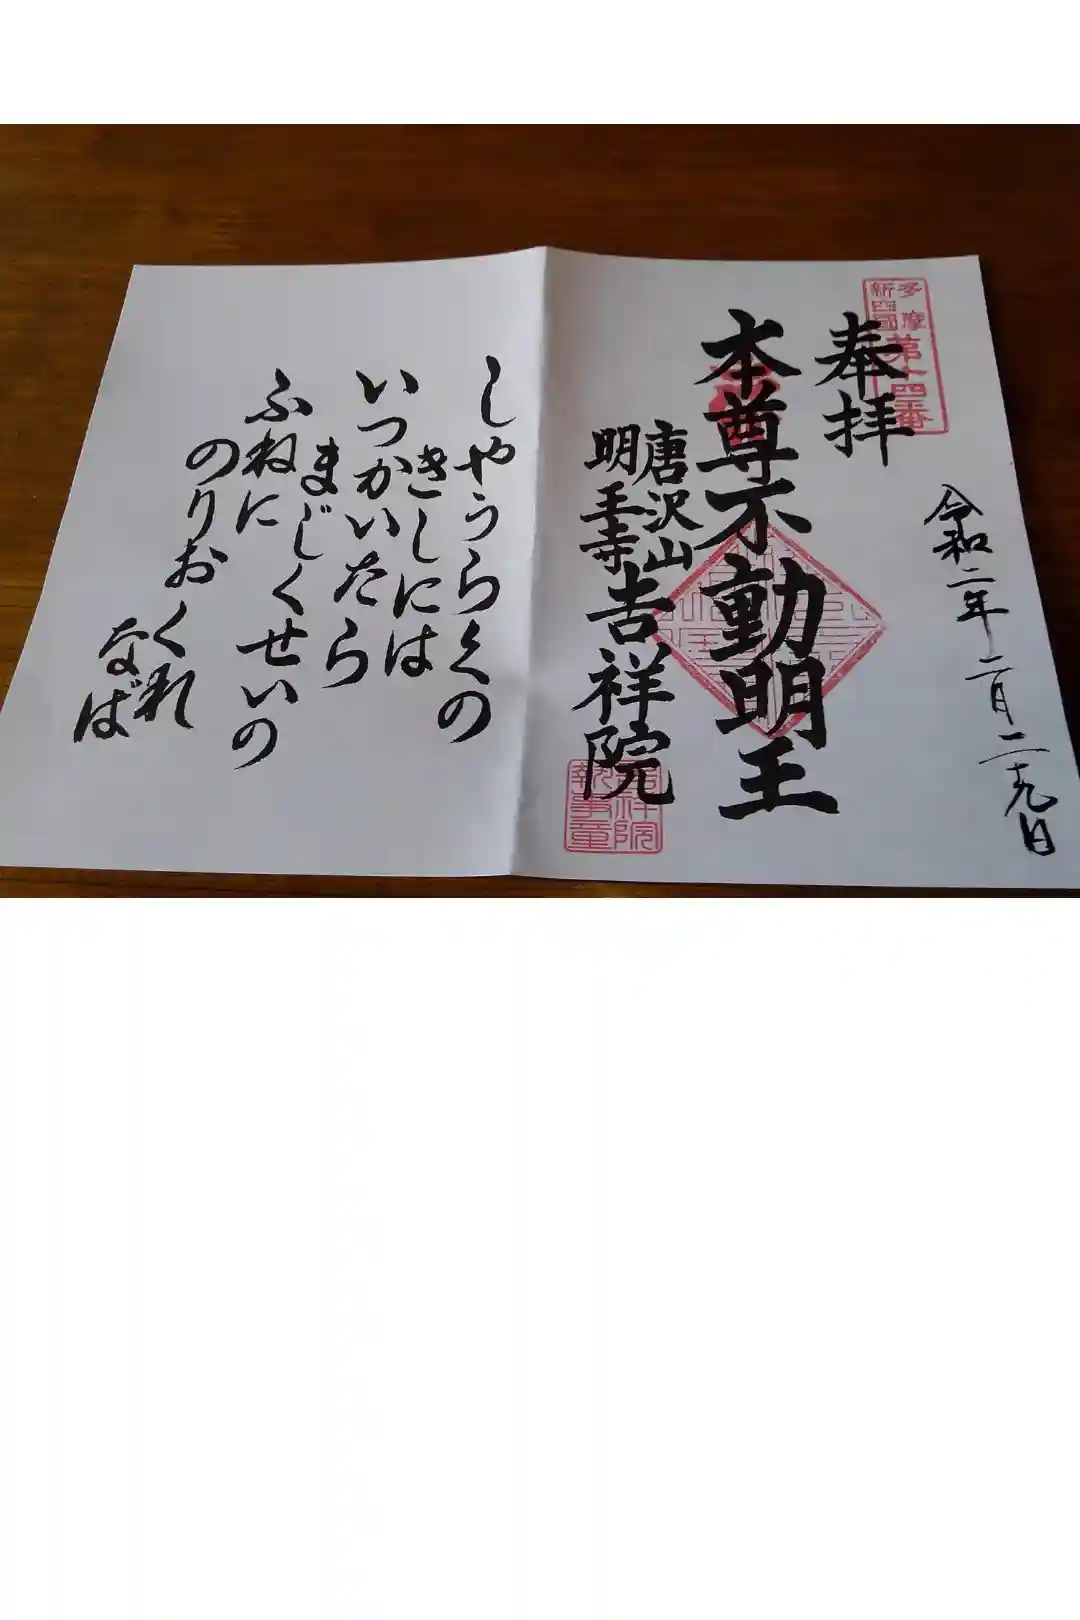 多摩
新四國
第十四番
奉拝
令和二年二月二十九日
本尊不動明王
唐沢山
明王寺
吉祥院
しやうらくの
きしには
いつかいたら
まじくせいの
ふねに
のりおくれ
なば